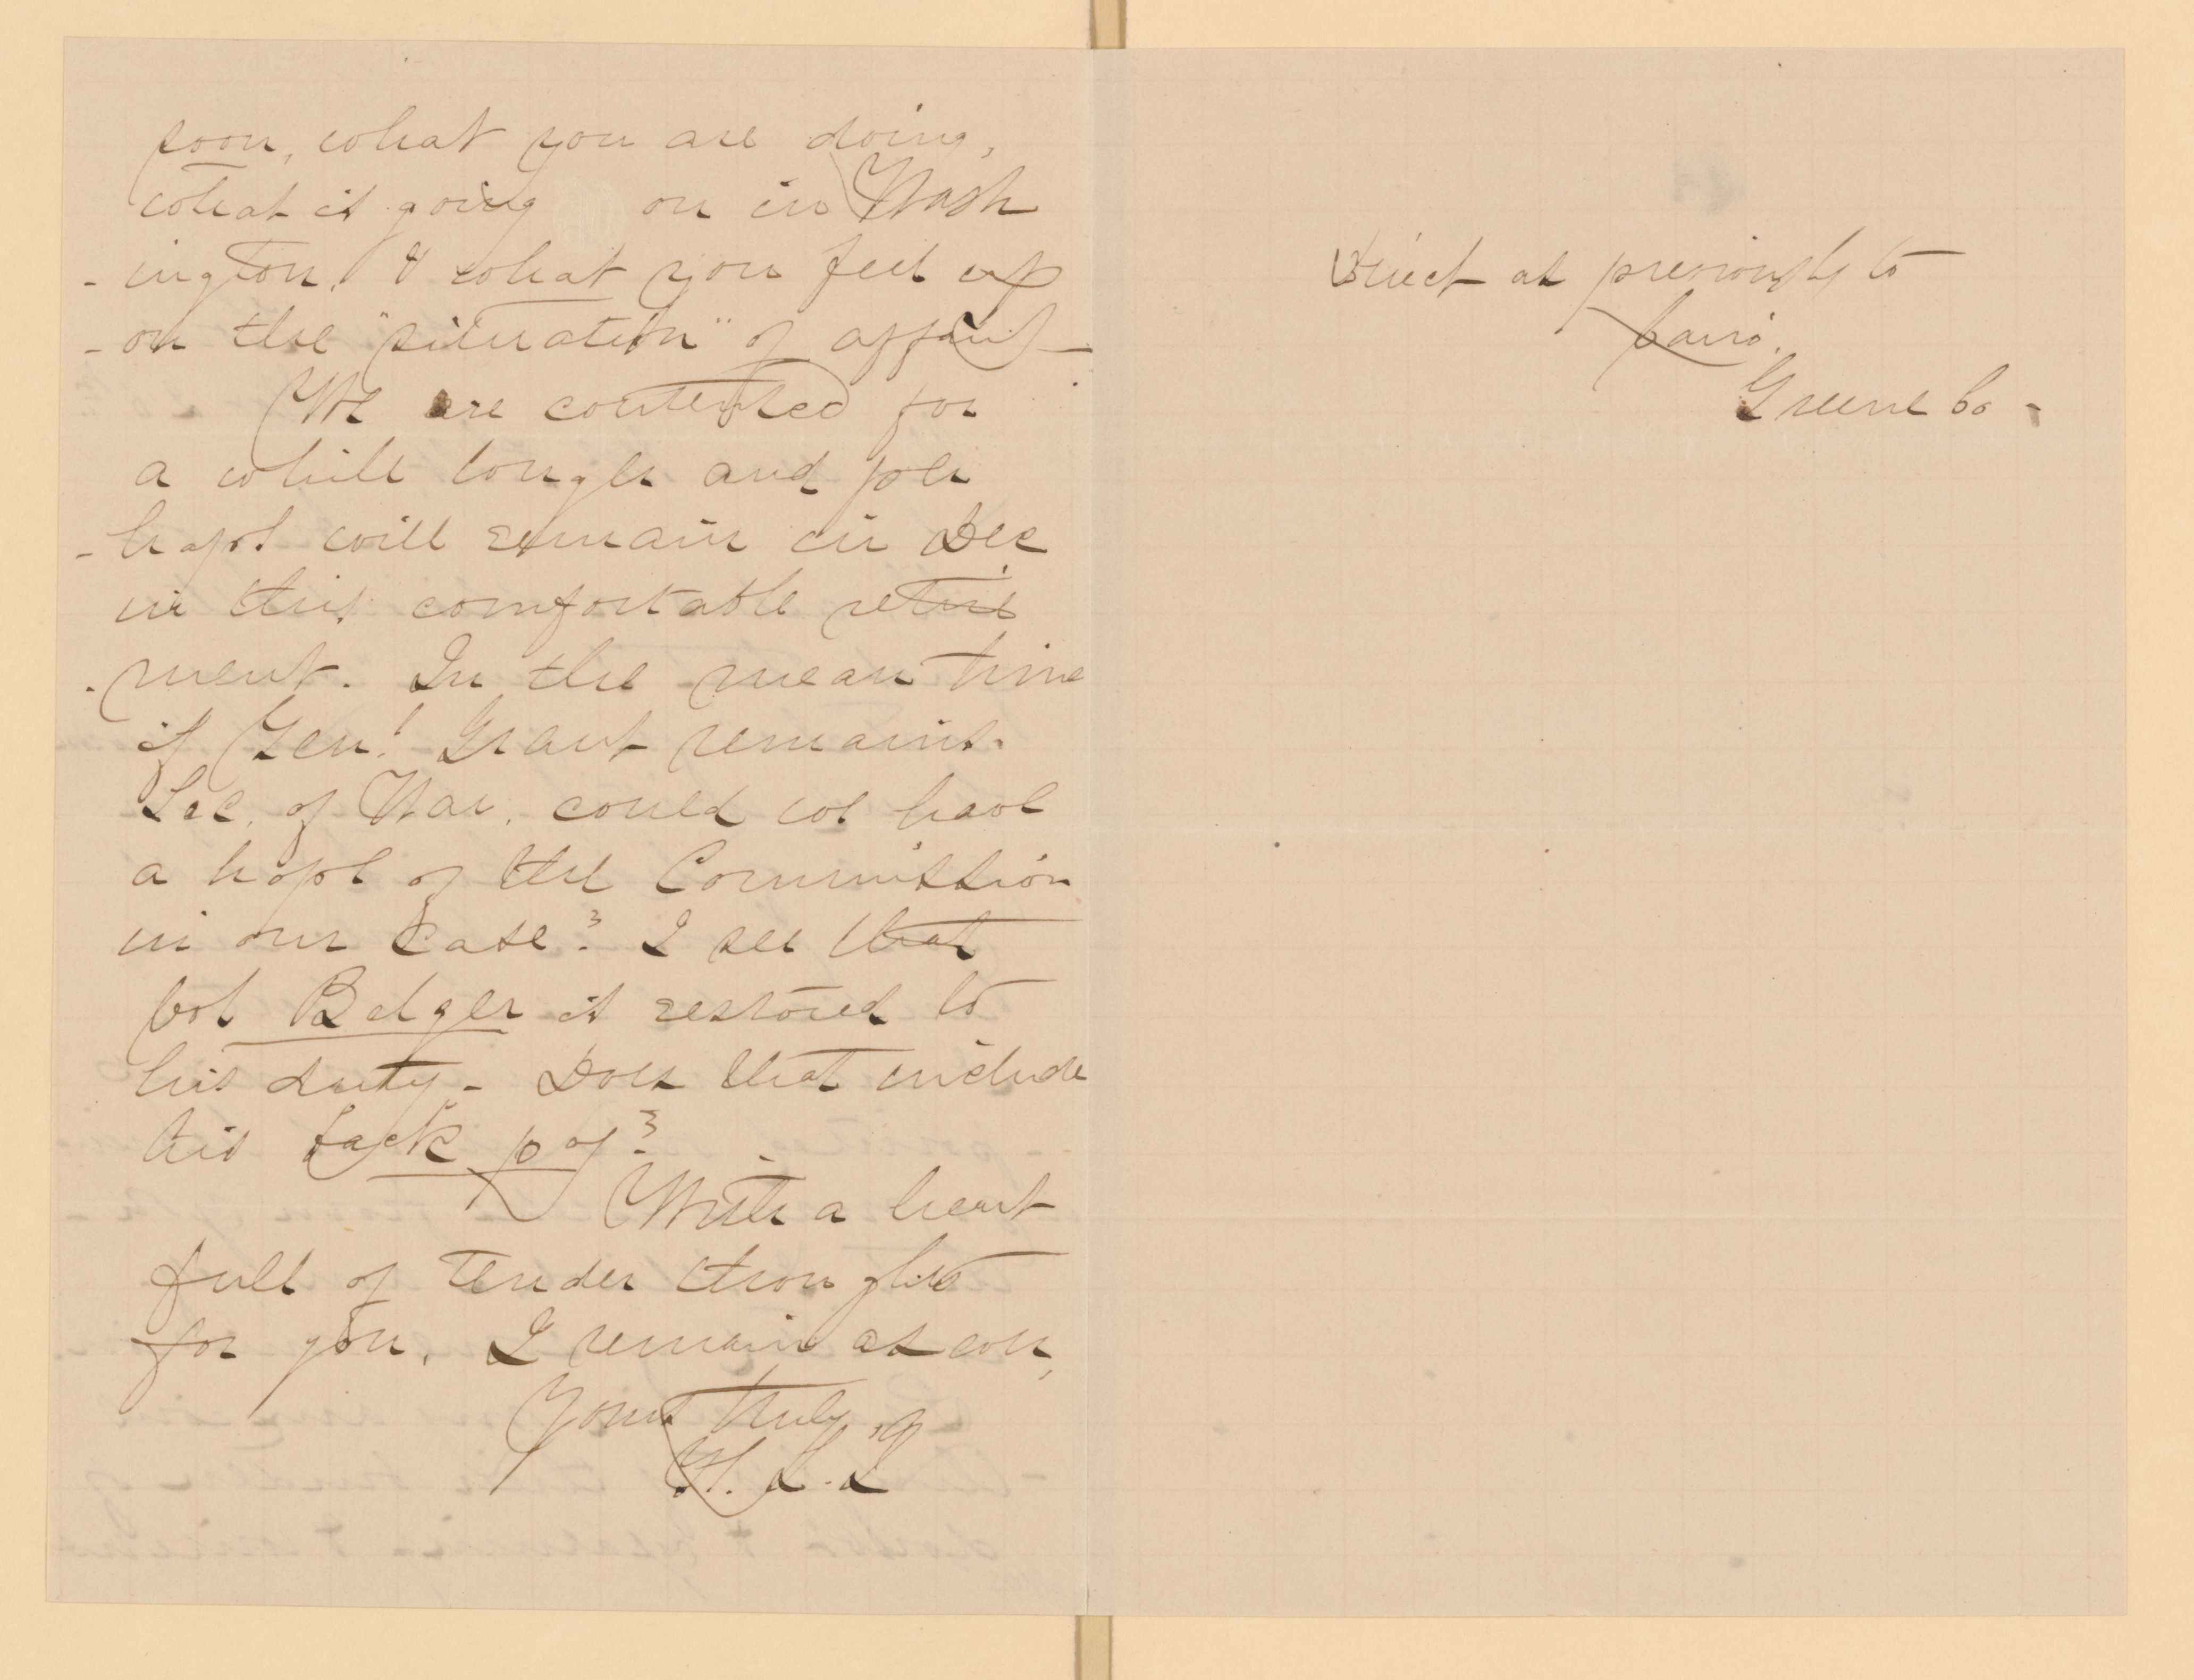 soon, what you are doing,
what is going on in Wash
-ington, & what you feel up
-on the "situation" of affairs
We are contented for
a while longer and per
-haps will remain in Dec
in this comfortable retire
-ment. In the mean time
if Gen! Grant remains
Sec. of War, could we have
a hope of the Commission
in our case? I see that
Col Belger is restored to
his duty - Does that include
his back pay?
With a heart
full of tender thoughts
for you, I remain as ever,
Yours truly,
H. L. L
Direct as previously to
Cairo.
Greene Co -